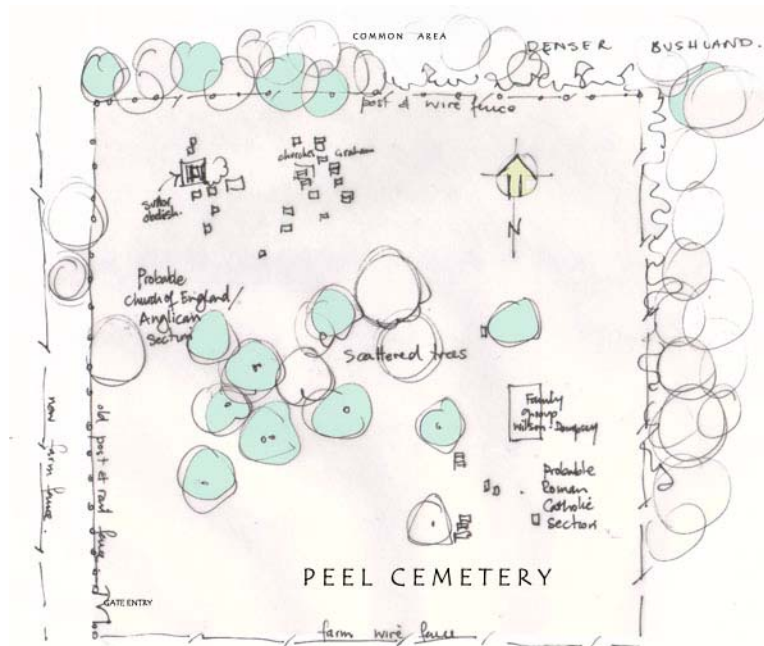 COMMON AREA
DENSER BUSHLAND.
post & wire fence
Graham
obelisk.
N
Probable
Church of England/
Anglican
Section
Scattered trees
Family
group
Wilson-Dempsey
Probable
Roman
Catholic
Section
new farm fence.
old post & rail fence
PEEL CEMETERY
GATE ENTRY
farm wire fence